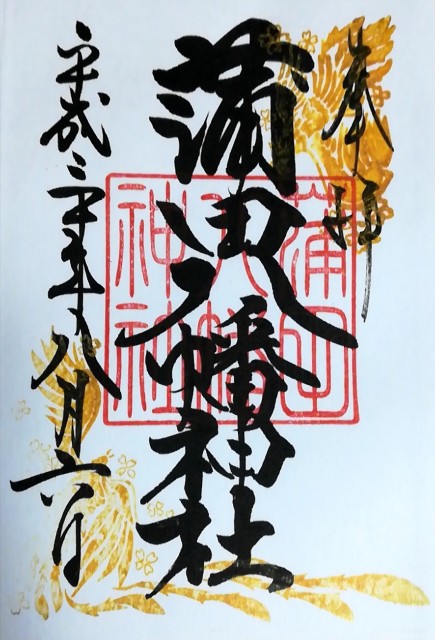 奉拝
蒲田八幡神社
蒲田八幡神社
平成二十五年八月六日